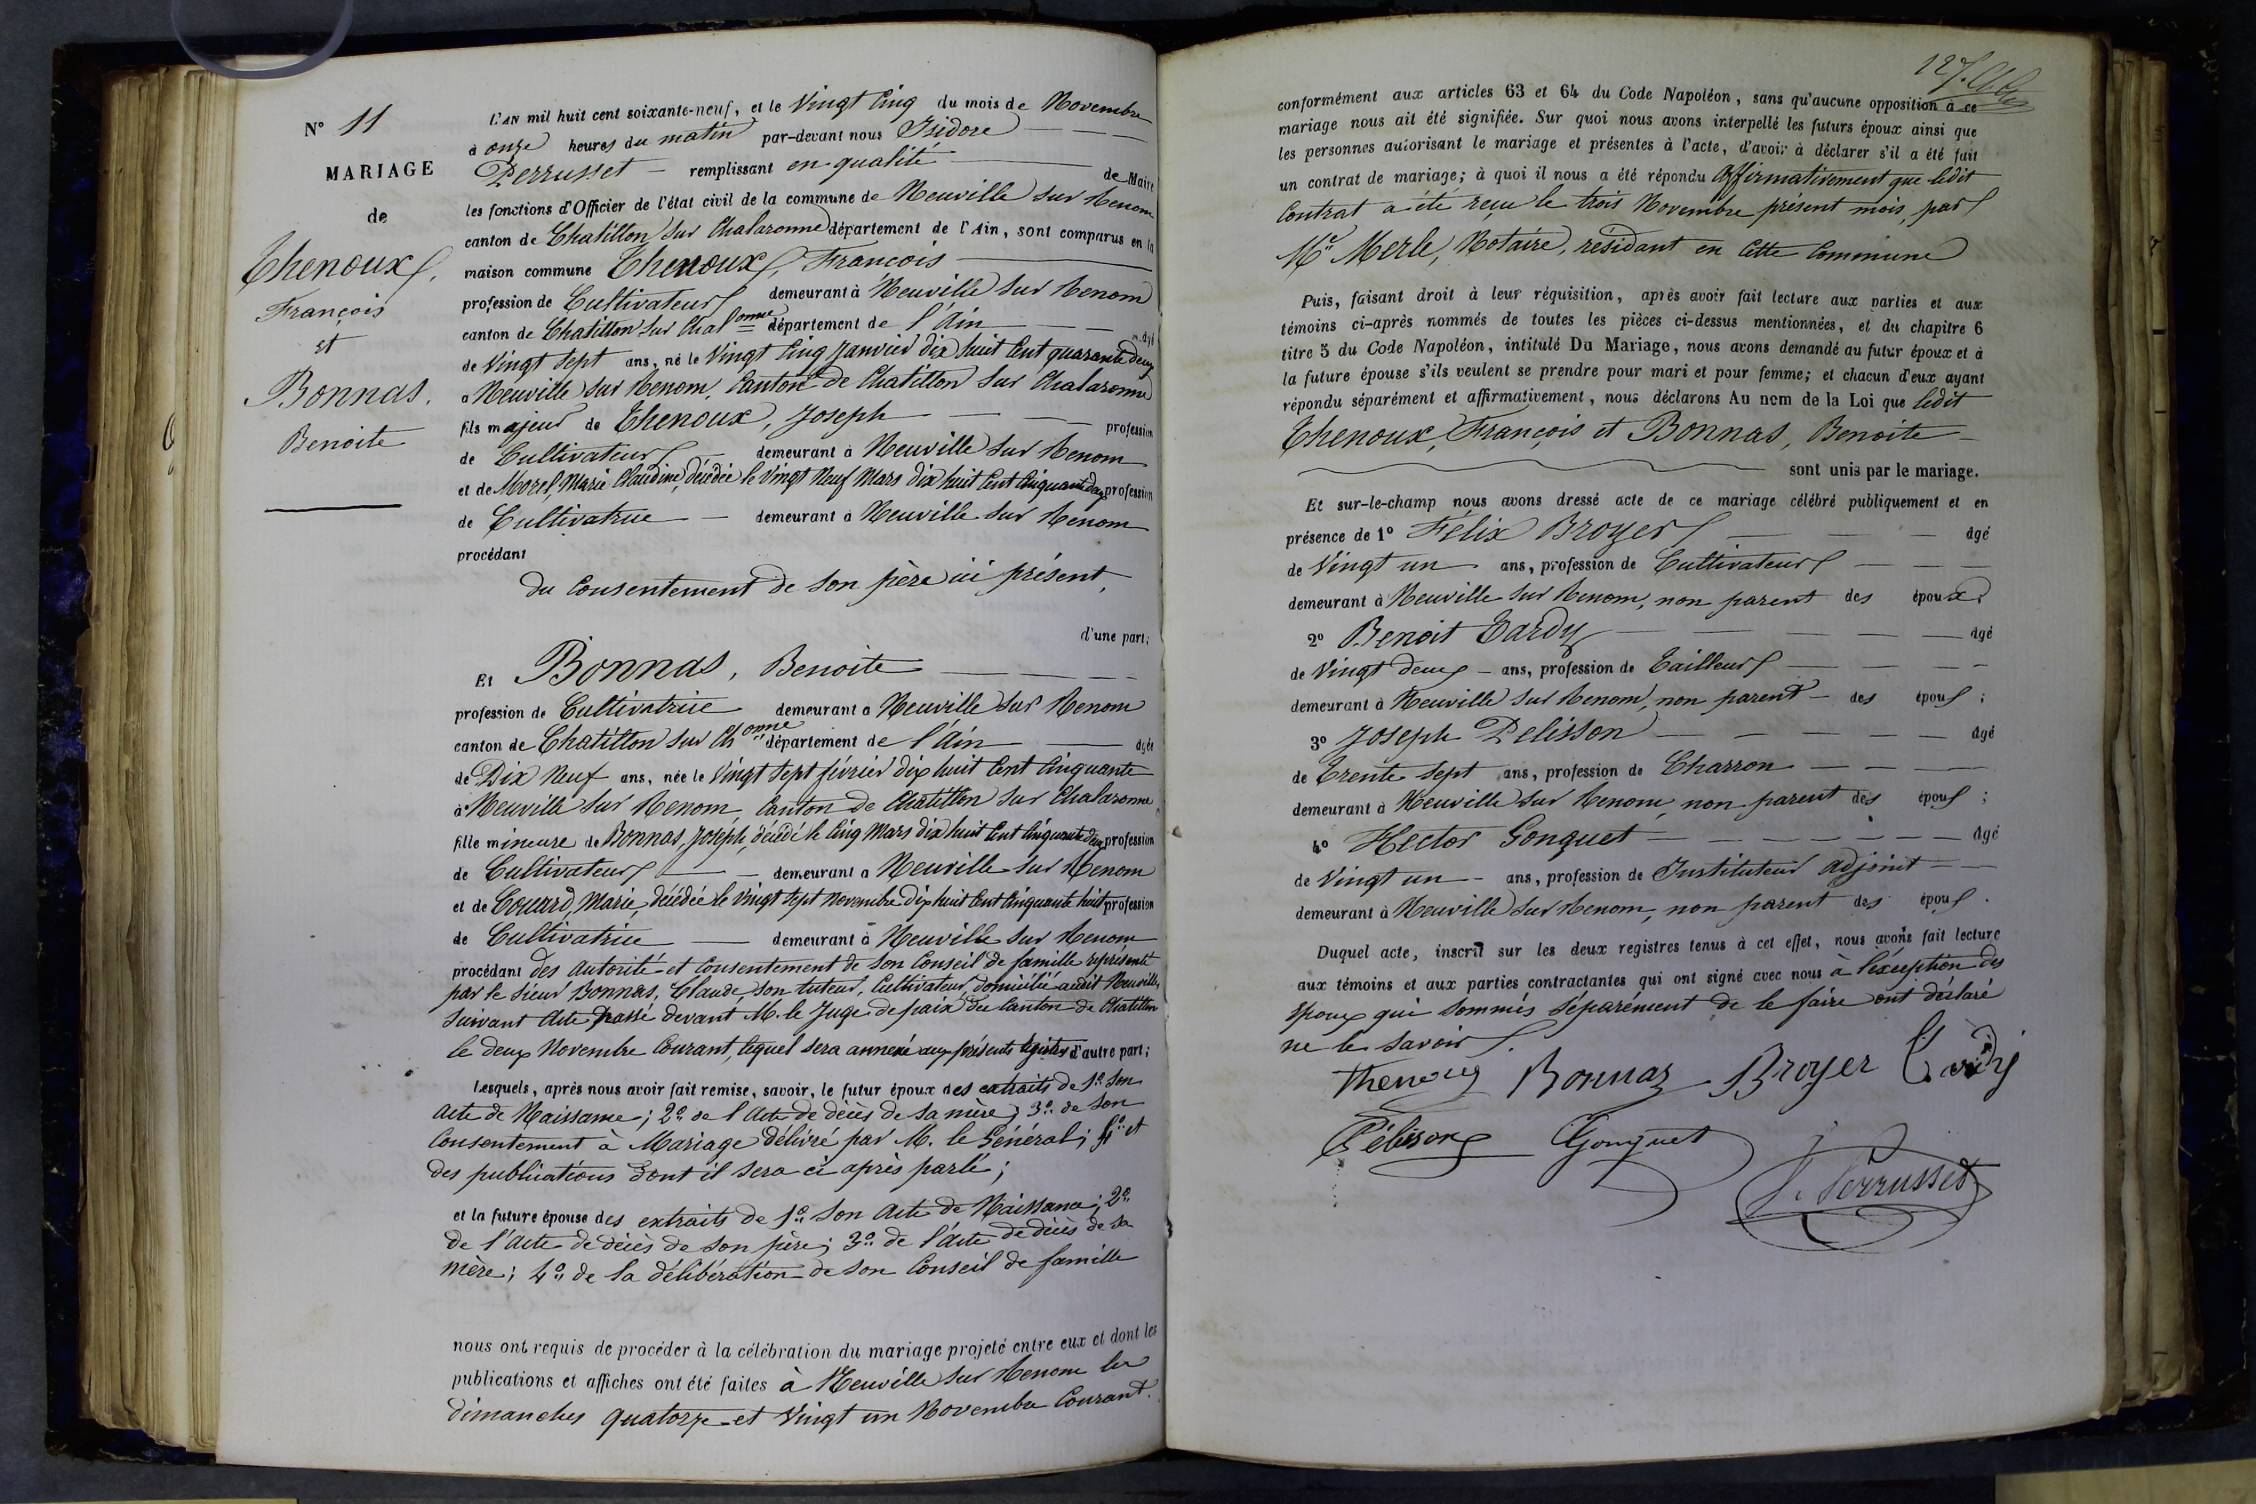 N° 11
MARIAGE
de
Thenoux,
François
et
Bonnas.
Benoite
L'AN mil huit cent soixante-neuf, et le Vingt Cinq du mois de Novembre
à onze heures du matin par-devant nous Isidore
Perrusset remplissant en qualité de Maire
les fonctions d'Officier de l'état civil de la commune de Neuville sur Renom
canton de Chatillon sur Chalaronne département de l'Ain, sont comparus en la
maison commune Thenoux, François
profession de Cultivateur demeurant à Neuville sur Renom
canton de Chatillon sur Chalonne département de l'Ain âgé
de Vingt sept ans, né le Vingt Cinq Janvier dix huit Cent quarante deux
à Neuville sur Renom, Canton de Chatillon sur Chalaronne
fils majeur de Thenoux, Joseph profession
de Cultivateur demeurant à Neuville sur Renom
et de Morel, Marie Claudine, décédée le Vingt Neuf Mars dix huit Cent Cinquante deux profession
de Cultivatrice demeurant à Neuville sur Renom
procédant
du Consentement de son père ici présent,
d'une part;
Et Bonnas, Benoite
profession de Cultivatrice demeurant à Neuville sur Renom
canton de Chatillon sur Chonne département de l'Ain âgée
de Dix Neuf ans, née le Vingt sept février dix huit Cent Cinquante
à Neuville sur Renom, Canton de Chatillon sur Chalaronne
fille mineure de Bonnas, Joseph, décédé le Cinq Mars dix huit Cent Cinquante deux profession
de Cultivateur demeurant à Neuville sur Renom
et de Couard, Marie, décédée le Vingt sept Novembre dix huit Cent Cinquante huit profession
de Cultivatrice demeurant à Neuville sur Renom
procédant des autorité et Consentement de son Conseil de famille représenté
par le sieur Bonnas, Claude, son tuteur, Cultivateur, domicilié audit Neuville,
suivant acte passé devant M. le Juge de paix du Canton de Chatillon
le deux Novembre Courant, lequel sera annexé aux présents registres d'autre part;
Lesquels, après nous avoir fait remise, savoir, le futur époux des extraits de 1° son
acte de Naissance; 2° de l'Acte de décès de sa mère; 3° de son
Consentement à Mariage délivré par M. le Général; 4° et
des publications dont il sera ci après parlé;
et la future épouse des extraits de 1° son acte de Naissance; 2°
de l'Acte de décès de son père; 3° de l'Acte de décès de sa
mère; 4° de la délibération de son Conseil de famille
nous ont requis de procéder à la célébration du mariage projeté entre eux et dont les
publications et affiches ont été faites à Neuville sur Renom les
dimanches quatorze et Vingt un Novembre Courant.
127.
conformément aux articles 63 et 64 du Code Napoléon, sans qu'aucune opposition à ce
mariage nous ait été signifiée. Sur quoi nous avons interpellé les futurs époux ainsi que
les personnes autorisant le mariage et présentes à l'acte, d'avoir à déclarer s'il a été fait
un contrat de mariage; à quoi il nous a été répondu Affirmativement que ledit
Contrat a été reçu le trois Novembre présent mois, par
Me Merle, Notaire, résidant en Cette Commune
Puis, faisant droit à leur réquisition, après avoir fait lecture aux parties et aux
témoins ci-après nommés de toutes les pièces ci-dessus mentionnées, et du chapitre 6
titre 5 du Code Napoléon, intitulé Du Mariage, nous avons demandé au futur époux et à
la future épouse s'ils veulent se prendre pour mari et pour femme; et chacun d'eux ayant
répondu séparément et affirmativement, nous déclarons Au nom de la Loi que ledit
Thenoux, François et Bonnas, Benoite
sont unis par le mariage.
Et sur-le-champ nous avons dressé acte de ce mariage célébré publiquement et en
présence de 1° Félix Broyer âgé
de Vingt un ans, profession de Cultivateur
demeurant à Neuville sur Renom, non parent des époux;
2° Benoit Tardy âgé
de Vingt deux ans, profession de Tailleur
demeurant à Neuville sur Renom, non parent des époux;
3° Joseph Pelisson âgé
de Trente sept ans, profession de Charron
demeurant à Neuville sur Renom, non parent des époux;
4° Hector Gonguet âgé
de Vingt un ans, profession de Instituteur adjoint
demeurant à Neuville sur Renom, non parent des époux.
Duquel acte, inscrit sur les deux registres tenus à cet effet, nous avons fait lecture
aux témoins et aux parties contractantes qui ont signé avec nous à l'exception des
époux qui sommés séparément de le faire ont déclaré
ne le savoir.
Thenoux Bonnas Broyer Tardy
Pélisson Gonguet
I. Perrusset